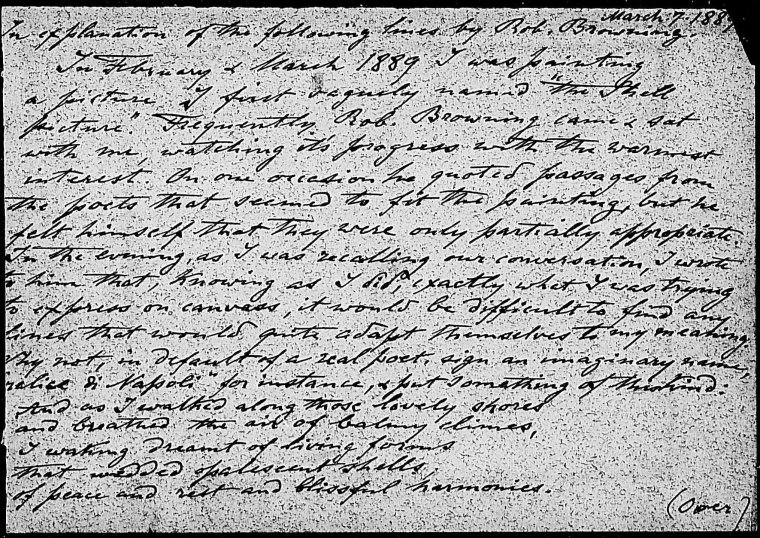 March 7. 188
In explanation of the following lines by Rob. Browning.
In February & March 1889 I was painting
a picture I first vaguely named "the Shell
picture". Frequently Rob. Browning came & sat
with me, watching its progress with the warmest
interest. On one occasion he quoted passages from
the poets that seemed to fit the painting, but he
felt himself that they were only partially appropriate.
In the evening, as I was recalling our conversation, I wrote
to him that, knowing as I did, exactly what I was trying
to express on canvass, it would be difficult to find any
lines that would quite adapt themselves to my meaning.
Why not, in default of a real poet, sign an imaginary name,
di Napoli" for instance, & put something of this kind:
And as I walked along those lovely shores
and breathed the air of balmy climes,
I waking dreamt of living forms
that wedded opalescent shells,
of peace and rest and blissful harmonies.
(Over)